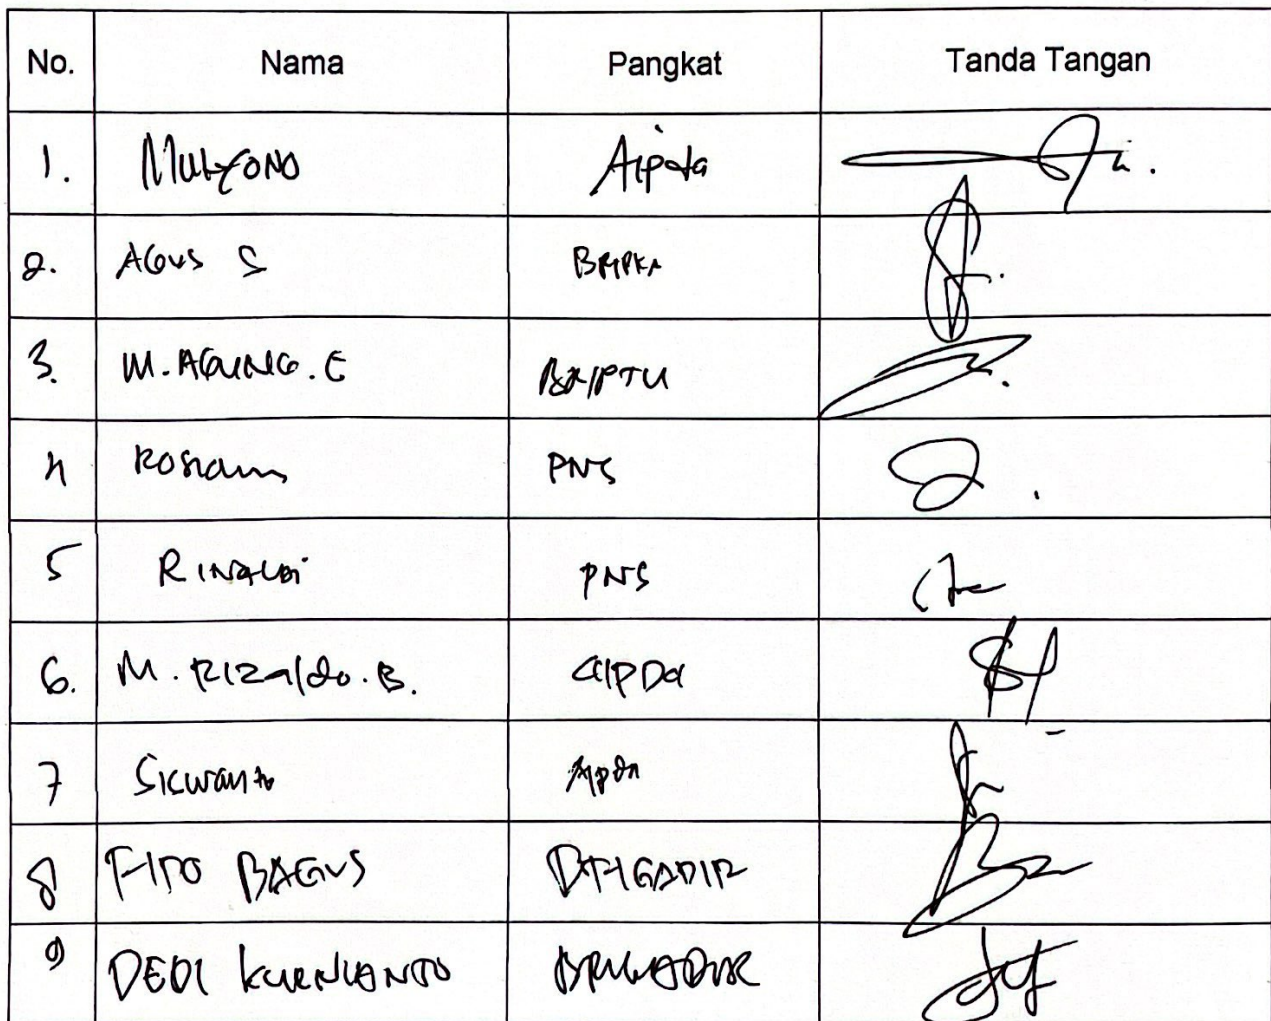 No. Nama Pangkat Tanda Tangan
1. MULYONO Aipda
2. AGUS S BRIPKA
3. M. AGUNG. E BRIPTU
4 PNS
5 RINALDI PNS
6. M. RIZaldo. B. aIPDa
7 Siswanto Aipda
8 BAGUS BRIGADIR
9 DEDI KURNIANTO BRIGADIR